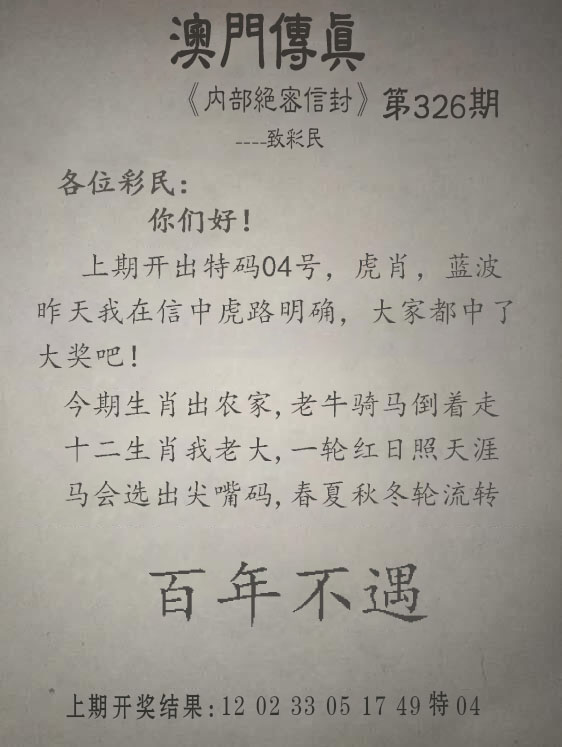 澳門傳真
《内部絕密信封》第326期
----致彩民
各位彩民：
你们好！
上期开出特码04号，虎肖，蓝波
昨天我在信中虎路明确，大家都中了
大奖吧！
今期生肖出农家,老牛骑马倒着走
十二生肖我老大,一轮红日照天涯
马会选出尖嘴码,春夏秋冬轮流转
百年不遇
上期开奖结果:12 02 33 05 17 49 特 04